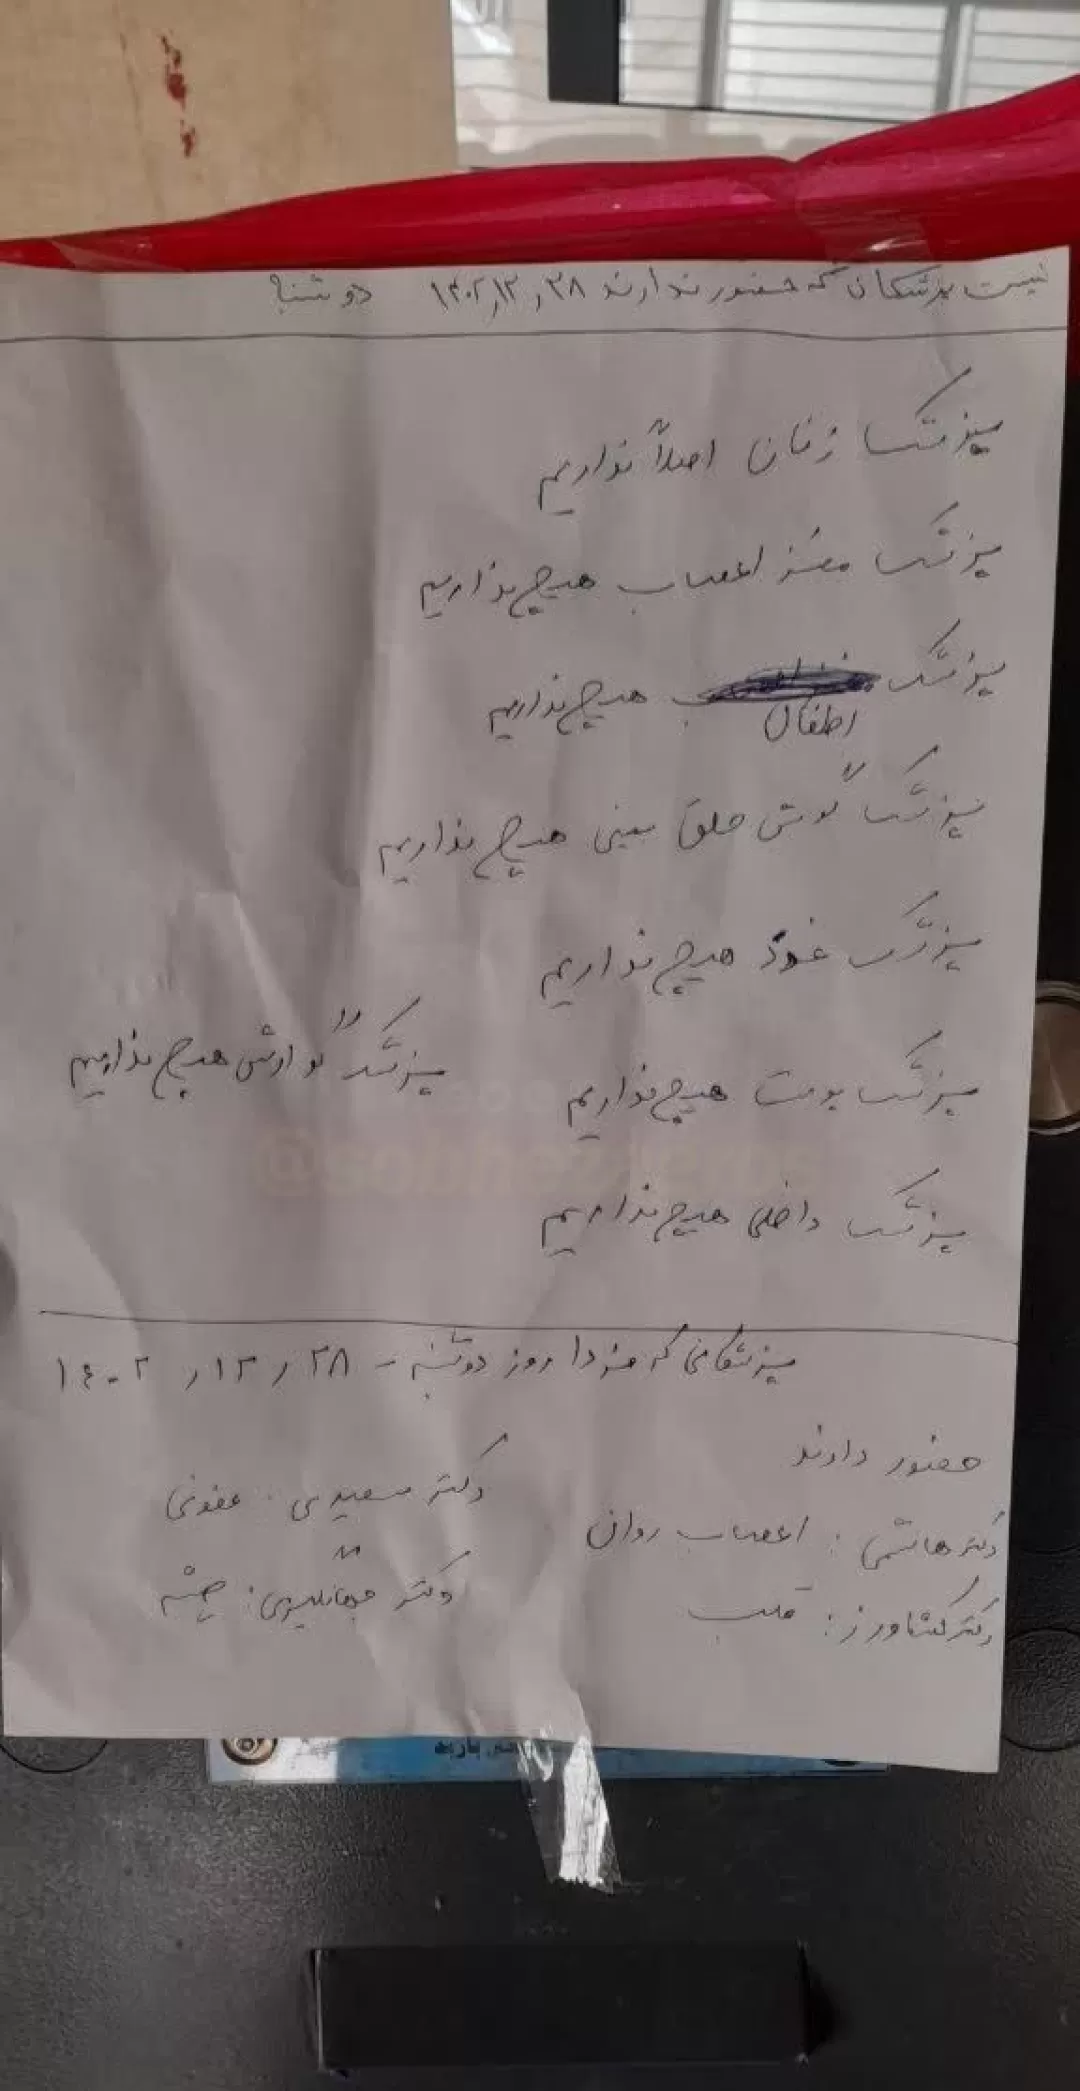 لیست پزشکان که حضور ندارند ۱۴۰۲,۱۲,۲۸ دوشنبه
پزشک زنان اصلاً نداریم
پزشک مغز اعصاب هیچ نداریم
پزشک اطفال هیچ نداریم
پزشک گوش حلق بینی هیچ نداریم
پزشک غدد هیچ نداریم
پزشک پوست هیچ نداریم
پزشک گوارش هیچ نداریم
پزشک داخلی هیچ نداریم
پزشکانی که فردا روز دوشنبه - ۱۴۰۲ / ۱۲ / ۲۸
حضور دارند
دکتر هاشمی : اعصاب روان
دکتر سعیدی : عفونی
دکتر کشاورز : قلب
دکتر جهانگیری : چشم